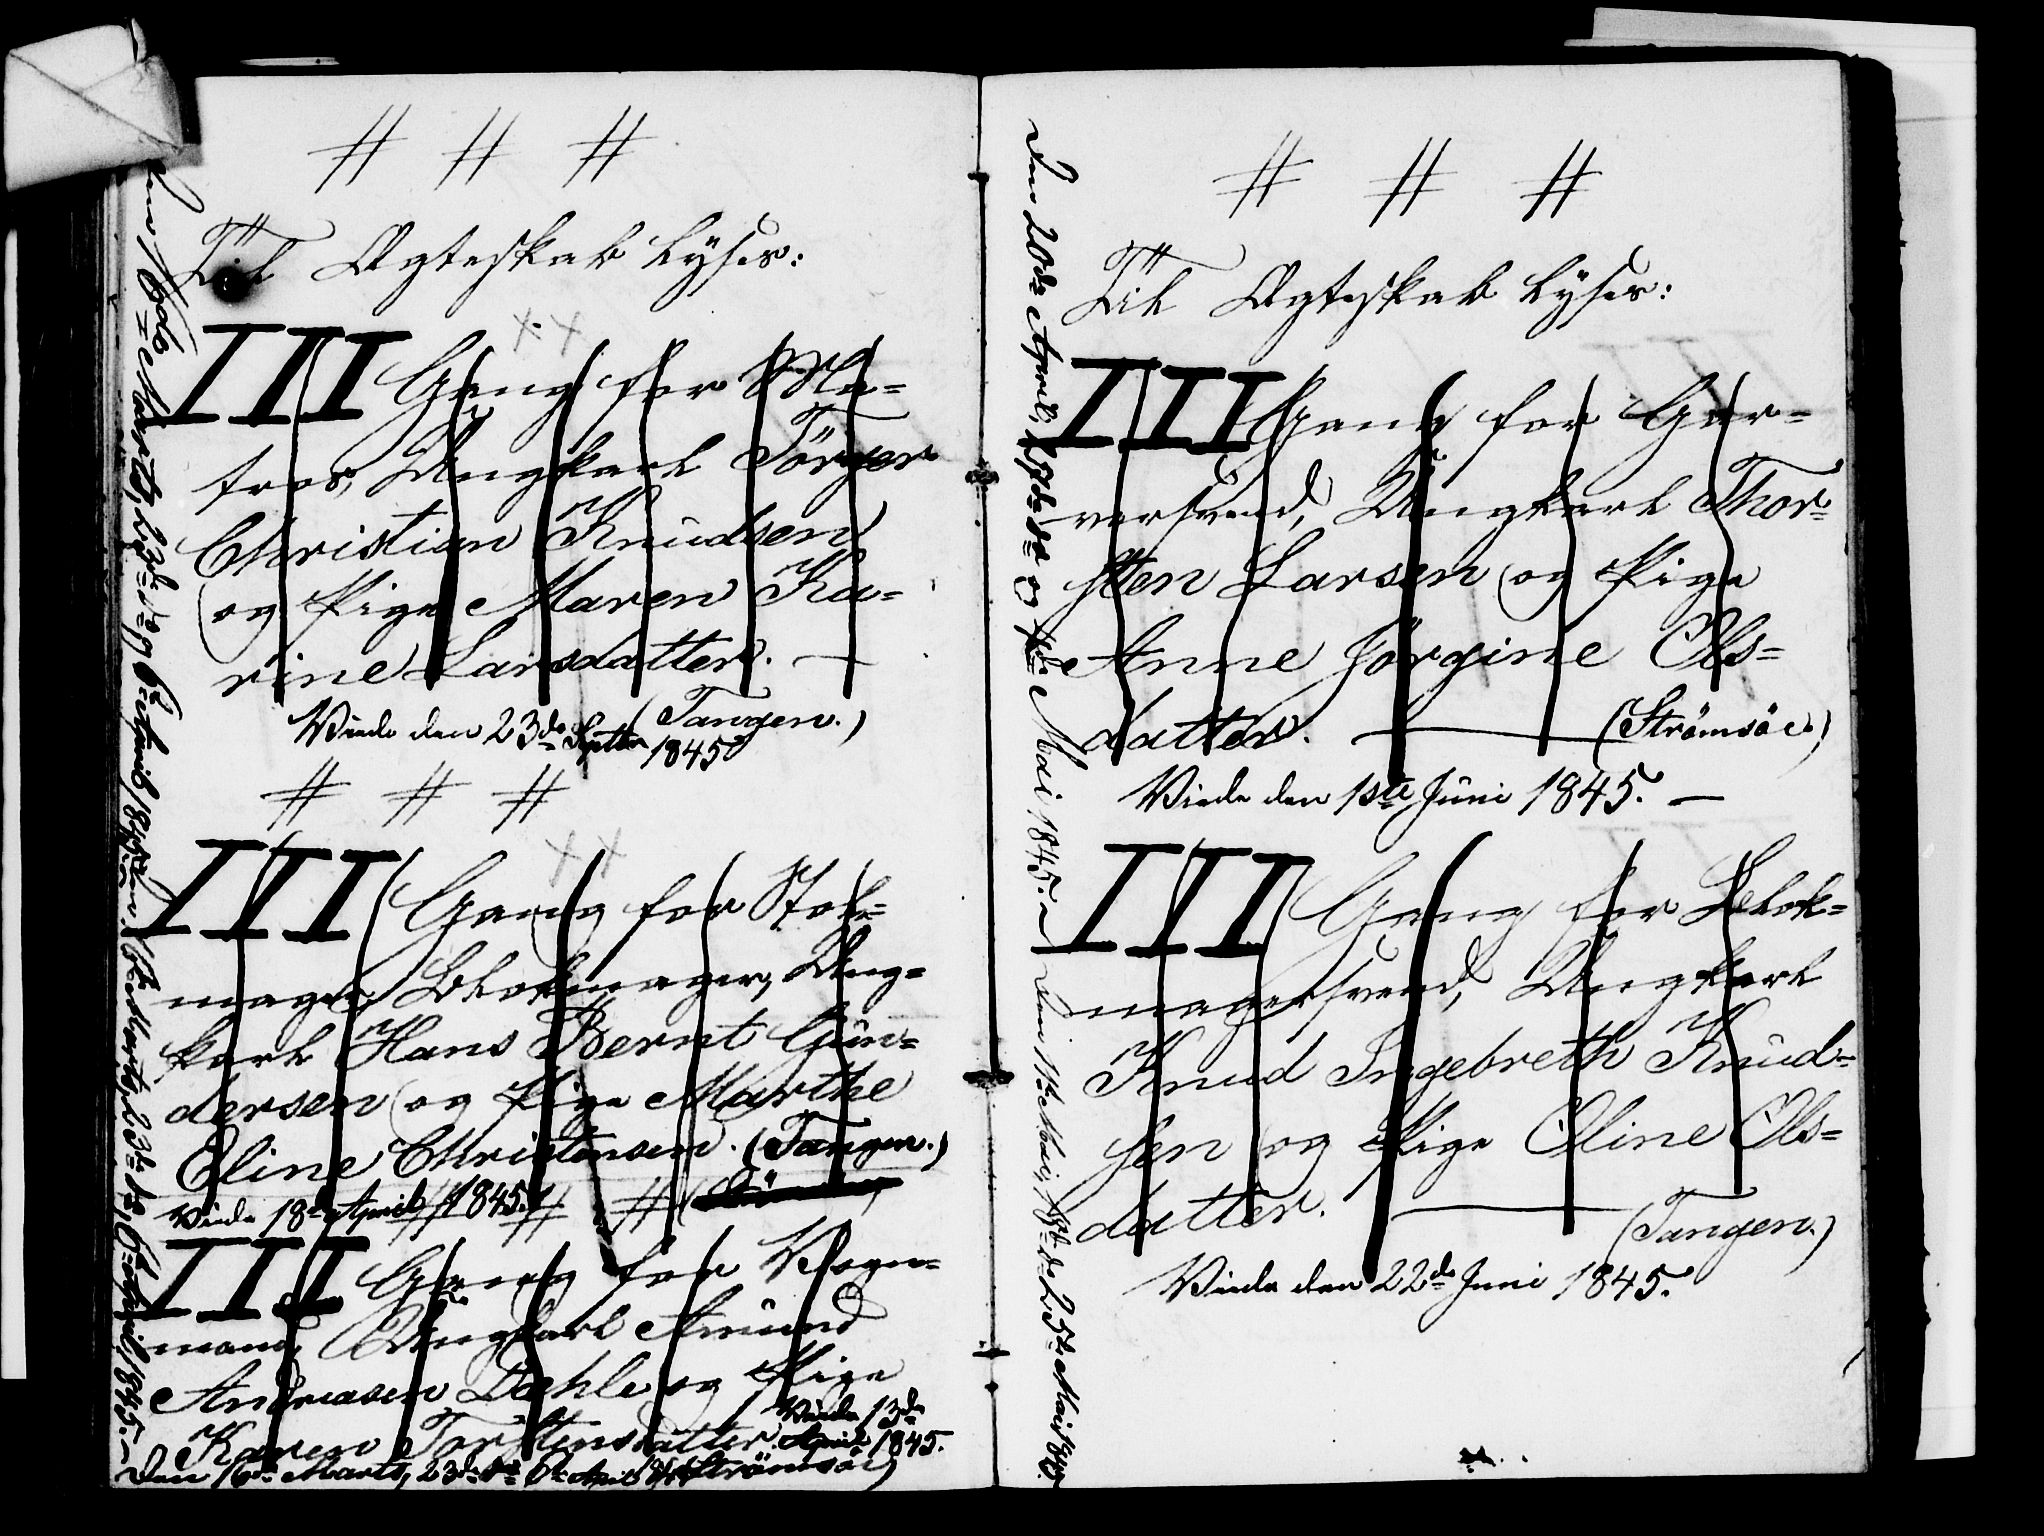 # # #
Til Ægteskab lyses:
III Gang for Ma=
tros, Ungkarl Törger
Christian Knudsen
og Pige Maren Ka=
rine Larsdatter. —
(Tangen.)
Viede den 23de Septbr 1845
# # #
III Gang for Stol=
mager, Blokmager, Ung=
karl Hans Bernt Gun=
dersen og Pige Marthe
Eline Christensen. (Tangen.)
Viede 18de April 1845.
# # #
III Gang for Vogn=
mand, Ungkarl Amund
Andreasen Dæhle og Pige
Karen Torstensdatter. Viede 13de April 1845.
Den 16de Marts, 23de do 6te April (Strömsöe)
16de Marts, 23de do og 6te April 1845.
Den 16de Marts, 23de do, 6te April 1845.
# # #
Til Ægteskab lyses:
III Gang for Gar=
versvend, Ungkarl Thor=
sten Larsen og Pige
Anne Jörgine Ols=
datter. — (Strömsöe)
Viede den 1ste Juni 1845. —
III Gang for Blok=
magersvend, Ungkarl
Knud Ingebreth Knud=
sen og Pige Oline Ols=
datter. —
(Tangen.)
Viede den 22de Juni 1845.
Den 20de April, 27de do og 4de Mai 1845.
Den 11te Mai, 18de do 25de Mai 1845.